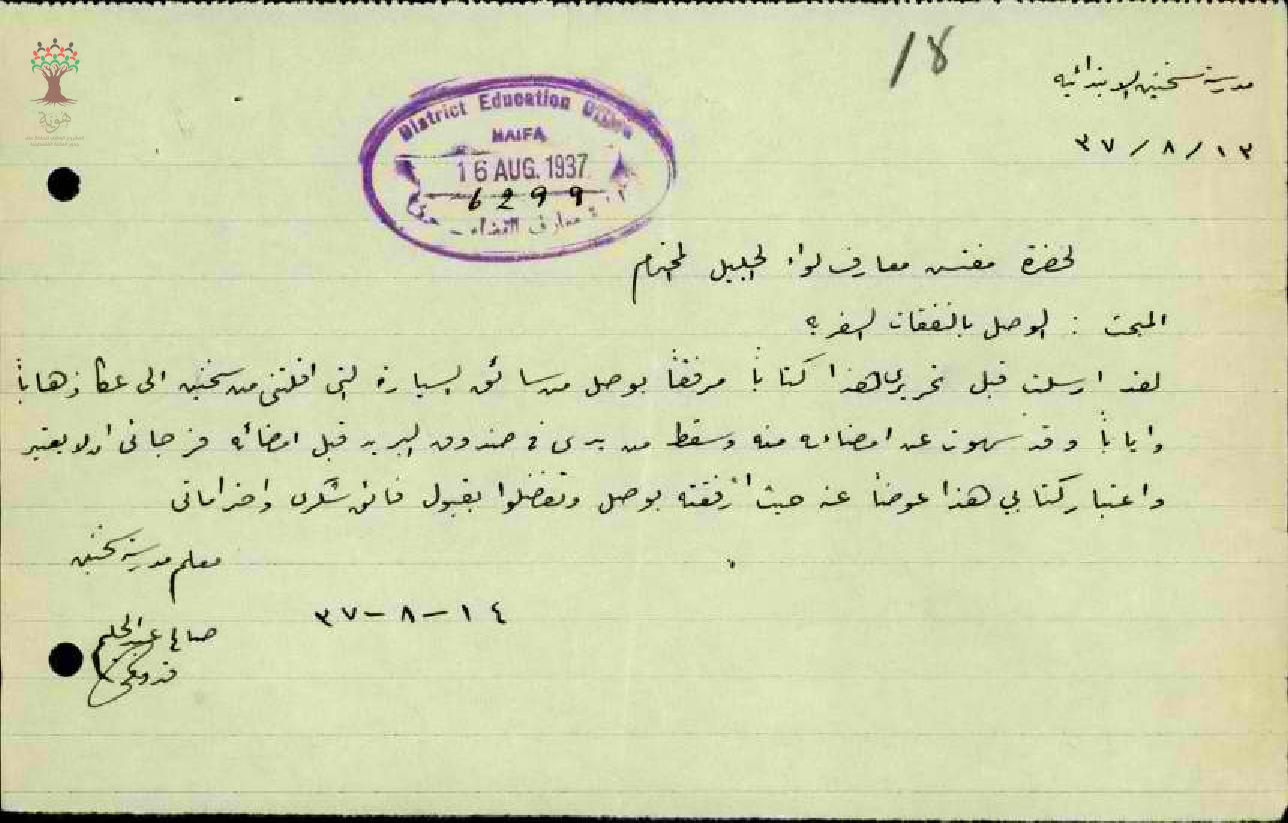 18
مدرسة سخنين الابتدائيه
١٣ / ٨ / ٣٧
District Education Office
HAIFA
16 AUG. 1937
6299
معارف القضاء - حيفا
لحضرة مفتش معارف لواء الجليل المحترم
المبحث : الوصل بالنفقات السفريه
لقد ارسلت قبل تحريري هذا كتاباً مرفقاً بوصل من سائق السيارة التي اقلتني من سخنين الى عكا ذهاباً
واياباً وقد سهوت عن امضائه منه وسقط من يدي في صندوق البريد قبل امضائه فرجائي ان لا يعتبر
واعتبار كتابي هذا عوضاً عنه حيث ارفقته بوصل وتفضلوا بقبول فائق شكري واحتراماتي
معلم مدرسة سخنين
١٤ - ٨ - ٣٧
صالح عبد الحليم
هوية